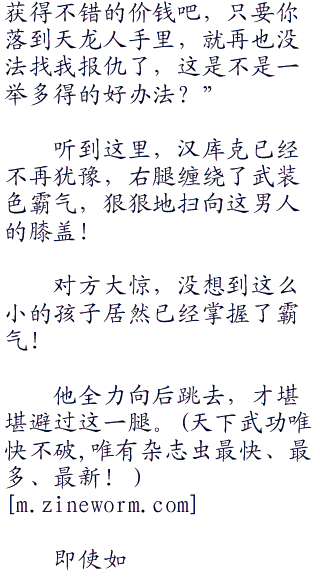 获得不错的价钱吧，只要你
落到天龙人手里，就再也没
法找我报仇了，这是不是一
举多得的好办法？”
听到这里，汉库克已经
不再犹豫，右腿缠绕了武装
色霸气，狠狠地扫向这男人
的膝盖！
对方大惊，没想到这么
小的孩子居然已经掌握了霸
气！
他全力向后跳去，才堪
堪避过这一腿。(天下武功唯
快不破,唯有杂志虫最快、最
多、最新！ )
[m.zineworm.com]
即使如